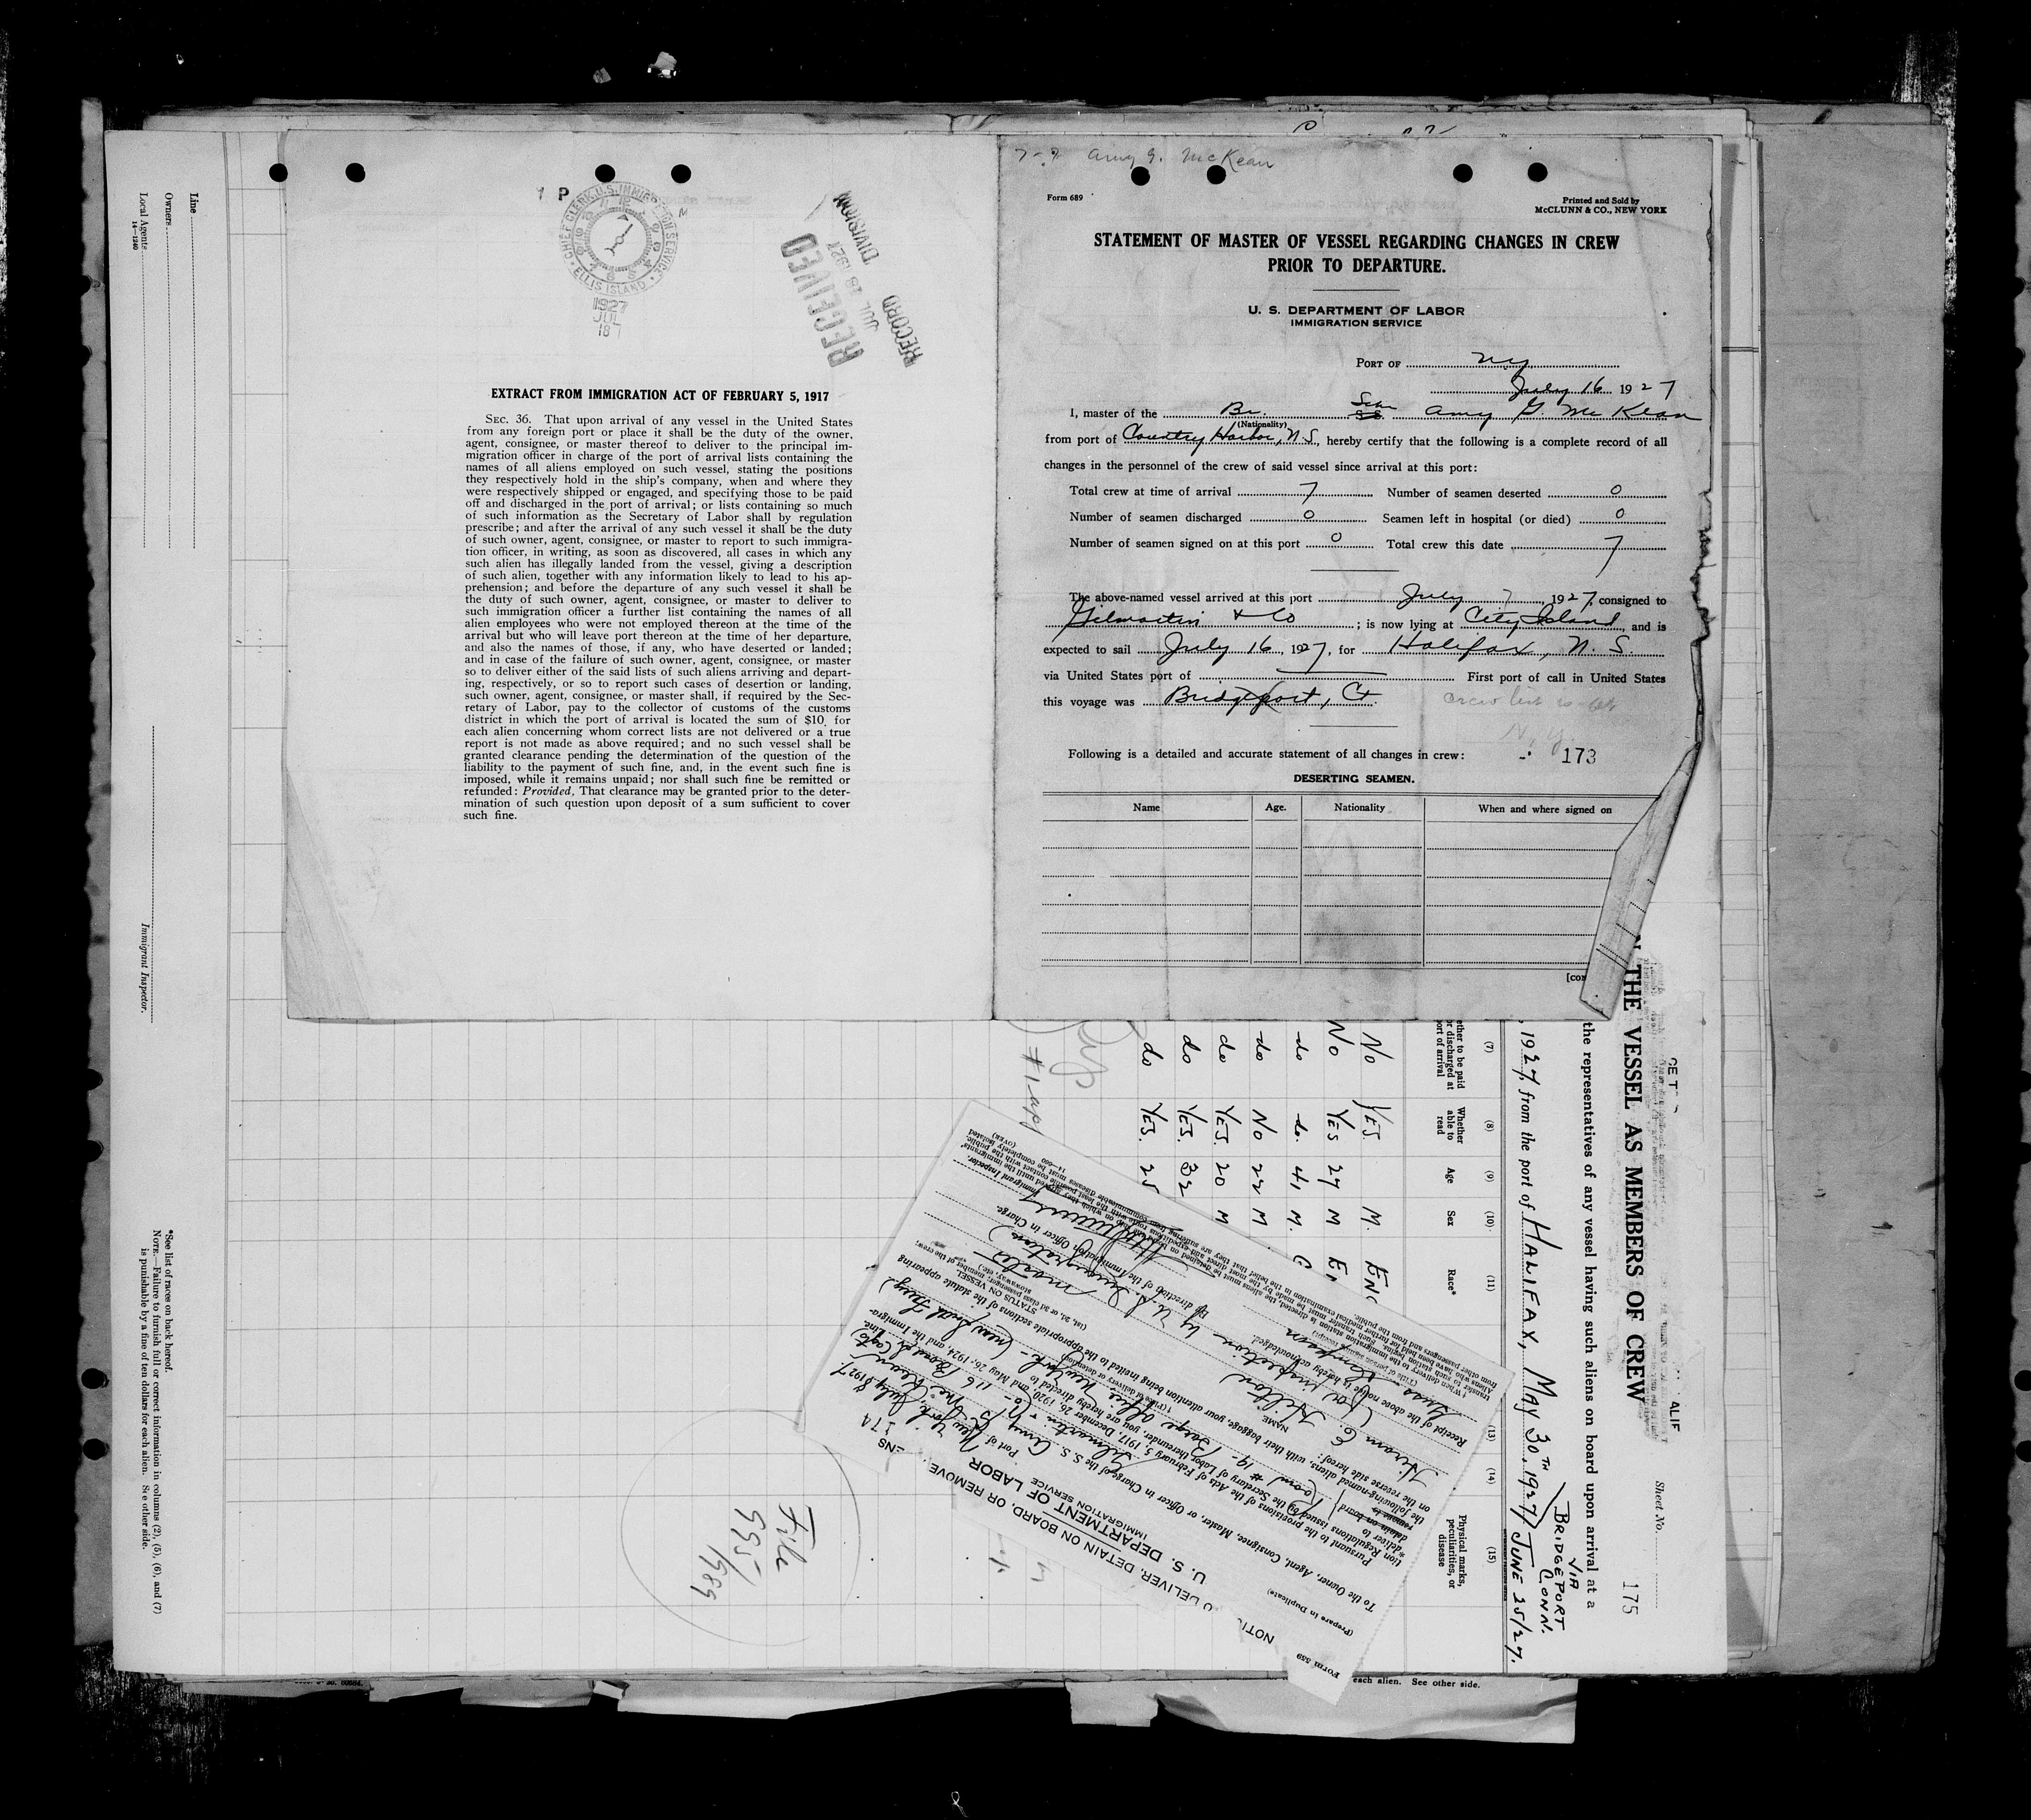 Line
Owners
Local Agents
14—1240
Immigrant Inspector.
*See list of races on back hereof.
NOTE.—Failure to furnish full or correct information in columns (2), (5), (6), and (7)
is punishable by a fine of ten dollars for each alien. See other side.
1 P M
CHIEF CLERK, U.S. IMMIGRATION SERVICE
ELLIS ISLAND
1927
JUL
18
RECEIVED
JUL 18 1927
RECORD DIVISION
EXTRACT FROM IMMIGRATION ACT OF FEBRUARY 5, 1917
SEC. 36. That upon arrival of any vessel in the United States
from any foreign port or place it shall be the duty of the owner,
agent, consignee, or master thereof to deliver to the principal im-
migration officer in charge of the port of arrival lists containing the
names of all aliens employed on such vessel, stating the positions
they respectively hold in the ship's company, when and where they
were respectively shipped or engaged, and specifying those to be paid
off and discharged in the port of arrival; or lists containing so much
of such information as the Secretary of Labor shall by regulation
prescribe; and after the arrival of any such vessel it shall be the duty
of such owner, agent, consignee, or master to report to such immigra-
tion officer, in writing, as soon as discovered, all cases in which any
such alien has illegally landed from the vessel, giving a description
of such alien, together with any information likely to lead to his ap-
prehension; and before the departure of any such vessel it shall be
the duty of such owner, agent, consignee, or master to deliver to
such immigration officer a further list containing the names of all
alien employees who were not employed thereon at the time of the
arrival but who will leave port thereon at the time of her departure,
and also the names of those, if any, who have deserted or landed;
and in case of the failure of such owner, agent, consignee, or master
so to deliver either of the said lists of such aliens arriving and depart-
ing, respectively, or so to report such cases of desertion or landing,
such owner, agent, consignee, or master shall, if required by the Sec-
retary of Labor, pay to the collector of customs of the customs
district in which the port of arrival is located the sum of $10 for
each alien concerning whom correct lists are not delivered or a true
report is not made as above required; and no such vessel shall be
granted clearance pending the determination of the question of the
liability to the payment of such fine, and, in the event such fine is
imposed, while it remains unpaid; nor shall such fine be remitted or
refunded: Provided, That clearance may be granted prior to the deter-
mination of such question upon deposit of a sum sufficient to cover
such fine.
7-7 Amy G. McKean
Form 689
Printed and Sold by
McCLUNN & CO., NEW YORK
STATEMENT OF MASTER OF VESSEL REGARDING CHANGES IN CREW
PRIOR TO DEPARTURE.
U. S. DEPARTMENT OF LABOR
IMMIGRATION SERVICE
PORT OF NY
July 16 1927
I, master of the Br. Schr SS Amy G. McKean
(Nationality)
from port of Country Harbor, N.S., hereby certify that the following is a complete record of all
changes in the personnel of the crew of said vessel since arrival at this port:
Total crew at time of arrival 7 Number of seamen deserted 0
Number of seamen discharged 0 Seamen left in hospital (or died) 0
Number of seamen signed on at this port 0 Total crew this date 7
The above-named vessel arrived at this port July 7, 1927, consigned to
Gilmartin & Co; is now lying at City Island, and is
expected to sail July 16, 1927, for Halifax, N. S.
via United States port of — First port of call in United States
this voyage was Bridgeport, Ct.
crew list is at
N.Y.
Following is a detailed and accurate statement of all changes in crew: 173
DESERTING SEAMEN.
Name Age. Nationality When and where signed on
THE VESSEL AS MEMBERS OF CREW
Sheet No.
175
the representatives of any vessel having such aliens on board upon arrival at a
, 1927, from the port of HALIFAX, MAY 30TH, 1927 / JUNE 25/27.
VIA
BRIDGEPORT
CONN.
(7) (8) (9) (10) (11) (13) (14) (15)
Whether able to read
Age
Sex
Race*
Physical marks, peculiarities, or disease
No YES. M. ENG
No YES 27 M
do do. 41 M.
do No 22 M
do YES. 20 M
do YES. 32
do YES. 25
File
995/989
Form 559
(Prepare in Duplicate)
DELIVER, DETAIN ON BOARD, OR REMOVE
U. S. DEPARTMENT OF LABOR
IMMIGRATION SERVICE
174
Port of New York, July 8 1927
To the Owner, Agent, Consignee, Master or Officer in Charge of the S. S. Amy G. McKean
Gilmartin & Co - 116 Broad St
Pursuant to the provisions of the Acts of February 5, 1917, December 26, 1920, and May 26, 1924, and the Immigra-
tion Regulations issued by the Secretary of Labor thereunder, you are hereby directed to
the following-named aliens, with their baggage, your attention being invited to the appropriate sections of the statute appearing
on the reverse side hereof:
NAME
STATUS ON VESSEL
Hiram E. Hilton
Master
By direction of the Immigration Officer in Charge.
Receipt of the above notice is hereby acknowledged.
Immigrant Inspector.
14—680
(OVER)
each alien. See other side.